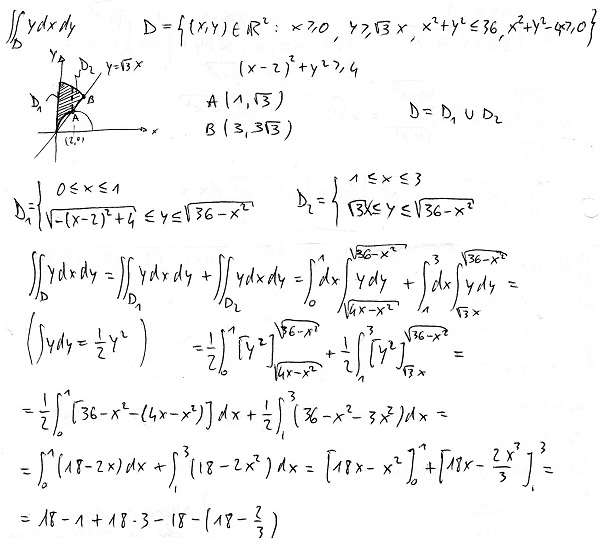 ∬_D y dx dy   D = {(x,y) ∈ ℝ² : x ≥ 0, y ≥ √3 x, x²+y² ≤ 36, x²+y²-4x ≥ 0}
(x-2)²+y² ≥ 4
y D₂ y=√3 x
D₁ B A x (2,0)
A (1, √3)
B (3, 3√3)
D = D₁ ∪ D₂
D₁ = { 0 ≤ x ≤ 1   D₂ = { 1 ≤ x ≤ 3
√(-(x-2)²+4) ≤ y ≤ √(36-x²)   √3x ≤ y ≤ √(36-x²)
∬_D y dx dy = ∬_D₁ y dx dy + ∬_D₂ y dx dy = ∫₀¹ dx ∫_{√(4x-x²)}^{√(36-x²)} y dy + ∫₁³ dx ∫_{√3 x}^{√(36-x²)} y dy =
(∫ y dy = 1/2 y²)   = 1/2 ∫₀¹ [y²]_{√(4x-x²)}^{√(36-x²)} + 1/2 ∫₁³ [y²]_{√3 x}^{√(36-x²)} =
= 1/2 ∫₀¹ [36-x²-(4x-x²)] dx + 1/2 ∫₁³ (36-x²-3x²) dx =
= ∫₀¹ (18-2x) dx + ∫₁³ (18-2x²) dx = [18x-x²]₀¹ + [18x - 2x³/3]₁³ =
= 18-1+18·3-18-(18-2/3)